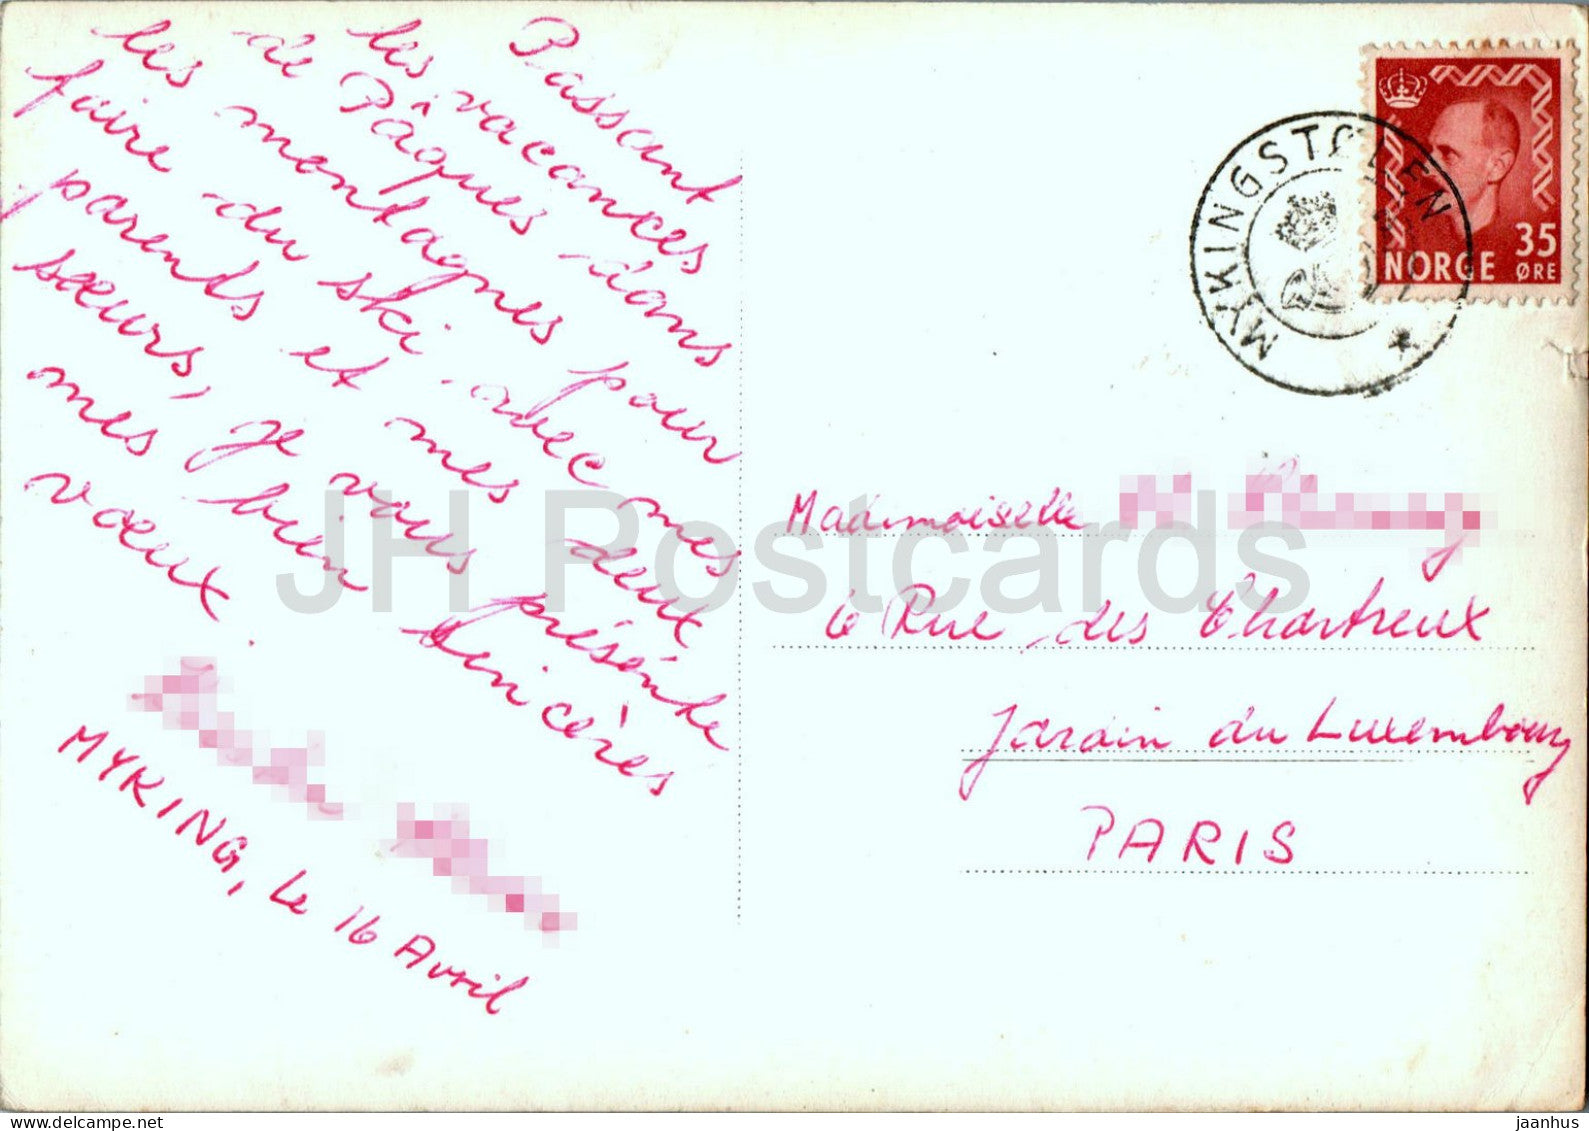 Passant
les vacances
de Pâques dans
les montagnes pour
faire du ski avec mes
parents et mes deux
sœurs, je vous présente
mes bien sincères
vœux.
MYKING, le 16 Avril
MYKINGSTØLEN
NORGE 35 ØRE
Mademoiselle
6 Rue des Chartreux
Jardin du Luxembourg
PARIS
JH Postcards
jaanhus